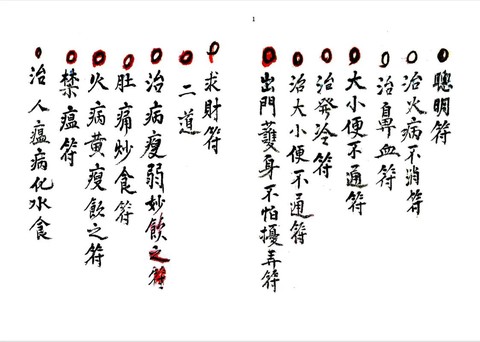 1
聰明符
治火病不消符
治鼻血符
大小便不通符
治發冷符
治大小便不通符
出門護身不怕擾弄符
求財符
二道
治病瘦弱妙飲之符
肚痛炒食符
火病黃瘦飲之符
禁瘟符
治人瘟病化水食